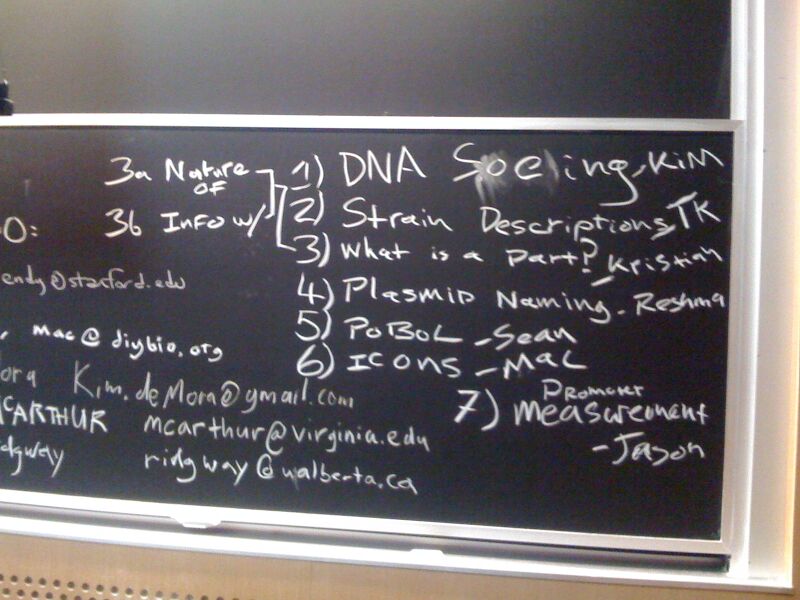 3a Nature
OF
3b Info w/
1) DNA
ing, KIM
2) Strain Descriptions, TK
3) What is a part?
- Kristian
4) Plasmid Naming - Reshma
5) PoBoL - Sean
6) ICONS - Mac
7) Promoter
measurement
- Jason
O:
endy@stanford.edu
mac@diybio.org
ora Kim.deMora@gmail.com
McARTHUR mcarthur@virginia.edu
dgway ridgway@ualberta.ca